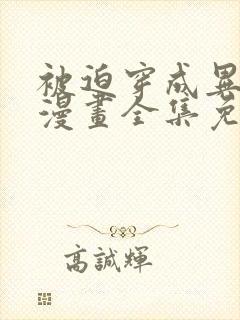 被迫穿成異
漫畫全集免
高誠輝